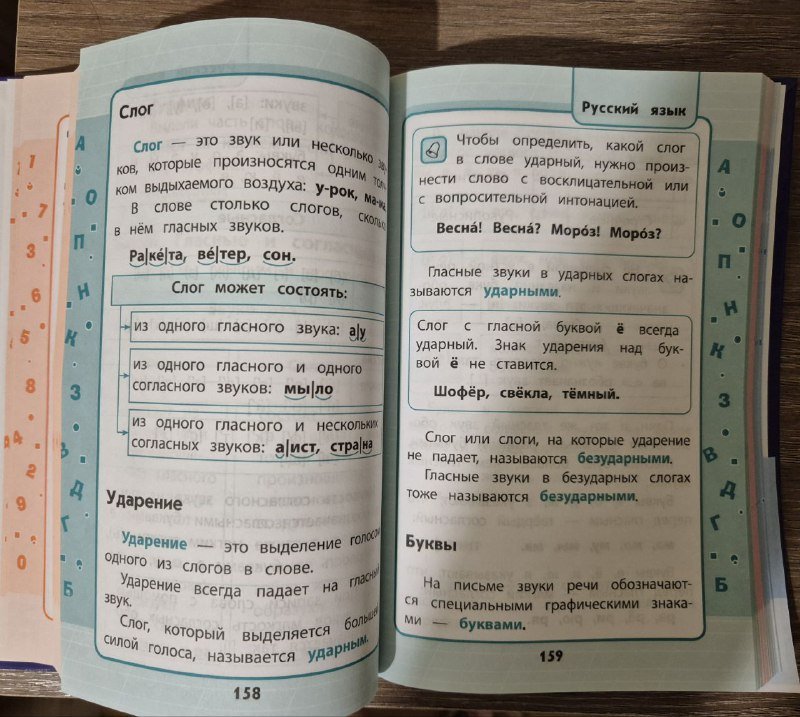 Слог
Слог — это звук или несколько зву
ков, которые произносятся одним толч
ком выдыхаемого воздуха: у-рок, ма-ма
В слове столько слогов, сколько
в нём гласных звуков.
Ра|ке́|та, ве́|тер, сон.
Слог может состоять:
из одного гласного звука: а|у
из одного гласного и одного
согласного звуков: мы|ло
из одного гласного и нескольких
согласных звуков: а|ист, стра|на
Ударение
Ударение — это выделение голосом
одного из слогов в слове.
Ударение всегда падает на гласный
звук.
Слог, который выделяется большей
силой голоса, называется ударным.
158
Русский язык
Чтобы определить, какой слог
в слове ударный, нужно произ-
нести слово с восклицательной или
с вопросительной интонацией.
Весна́! Весна́? Моро́з! Моро́з?
Гласные звуки в ударных слогах на-
зываются ударными.
Слог с гласной буквой ё всегда
ударный. Знак ударения над бук-
вой ё не ставится.
Шофёр, свёкла, тёмный.
Слог или слоги, на которые ударение
не падает, называются безударными.
Гласные звуки в безударных слогах
тоже называются безударными.
Буквы
На письме звуки речи обозначают-
ся специальными графическими знака-
ми — буквами.
159